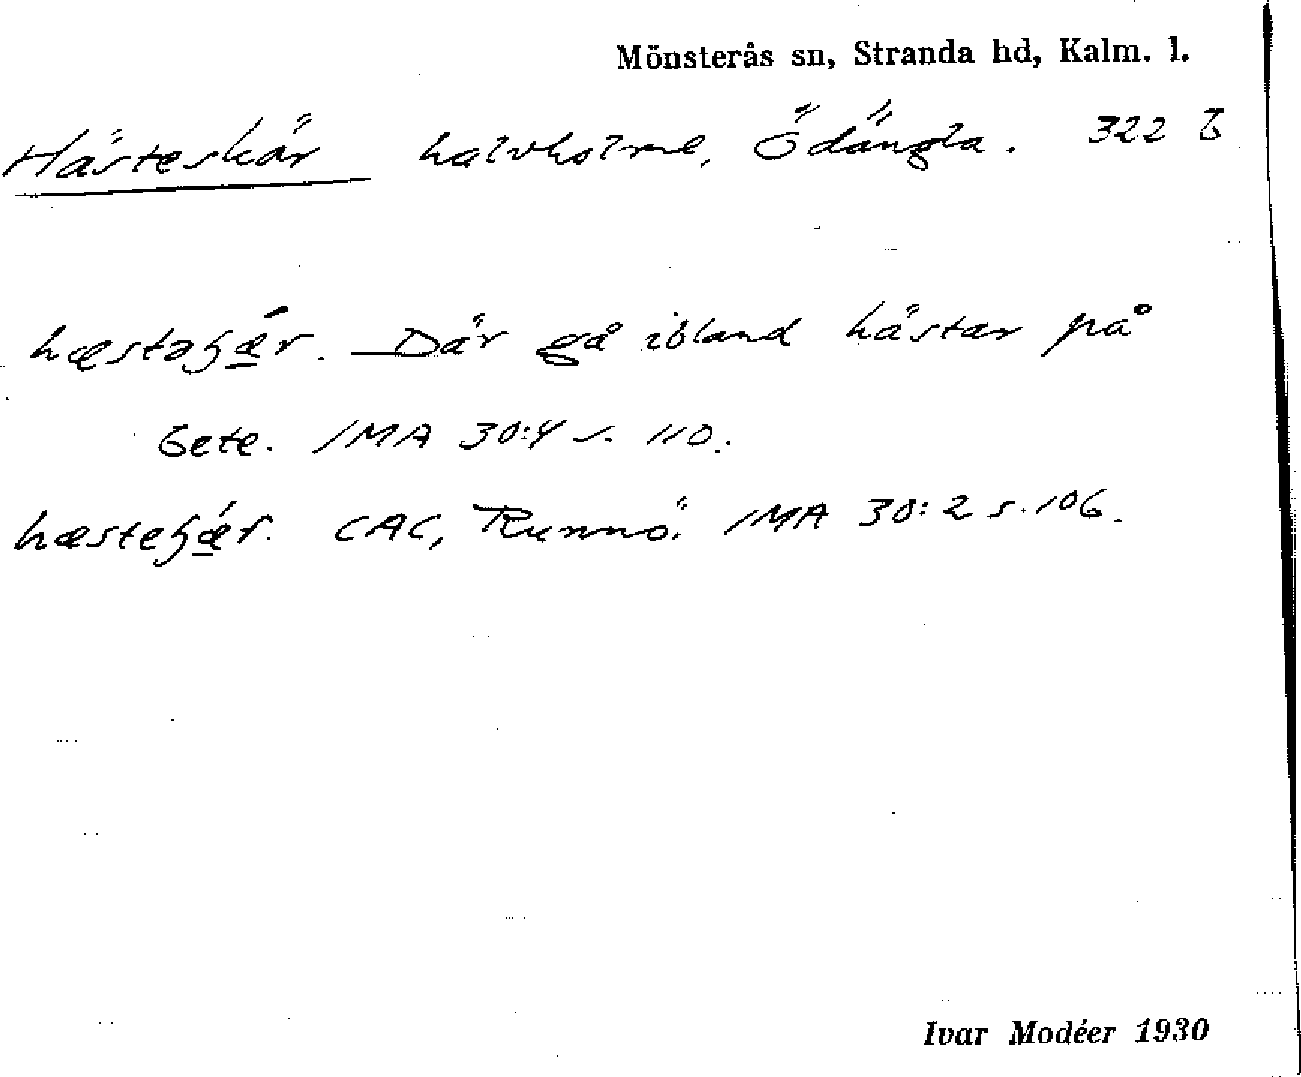 Mönsterås sn, Stranda hd, Kalm. l.
Hästeskär halvholme, Ödängla. 322 b
Där gå ibland hästar på
bete. IMA 30:4 s. 110.
CAC, Runnö. IMA 30:2 s. 106.
Ivar Modéer 1930